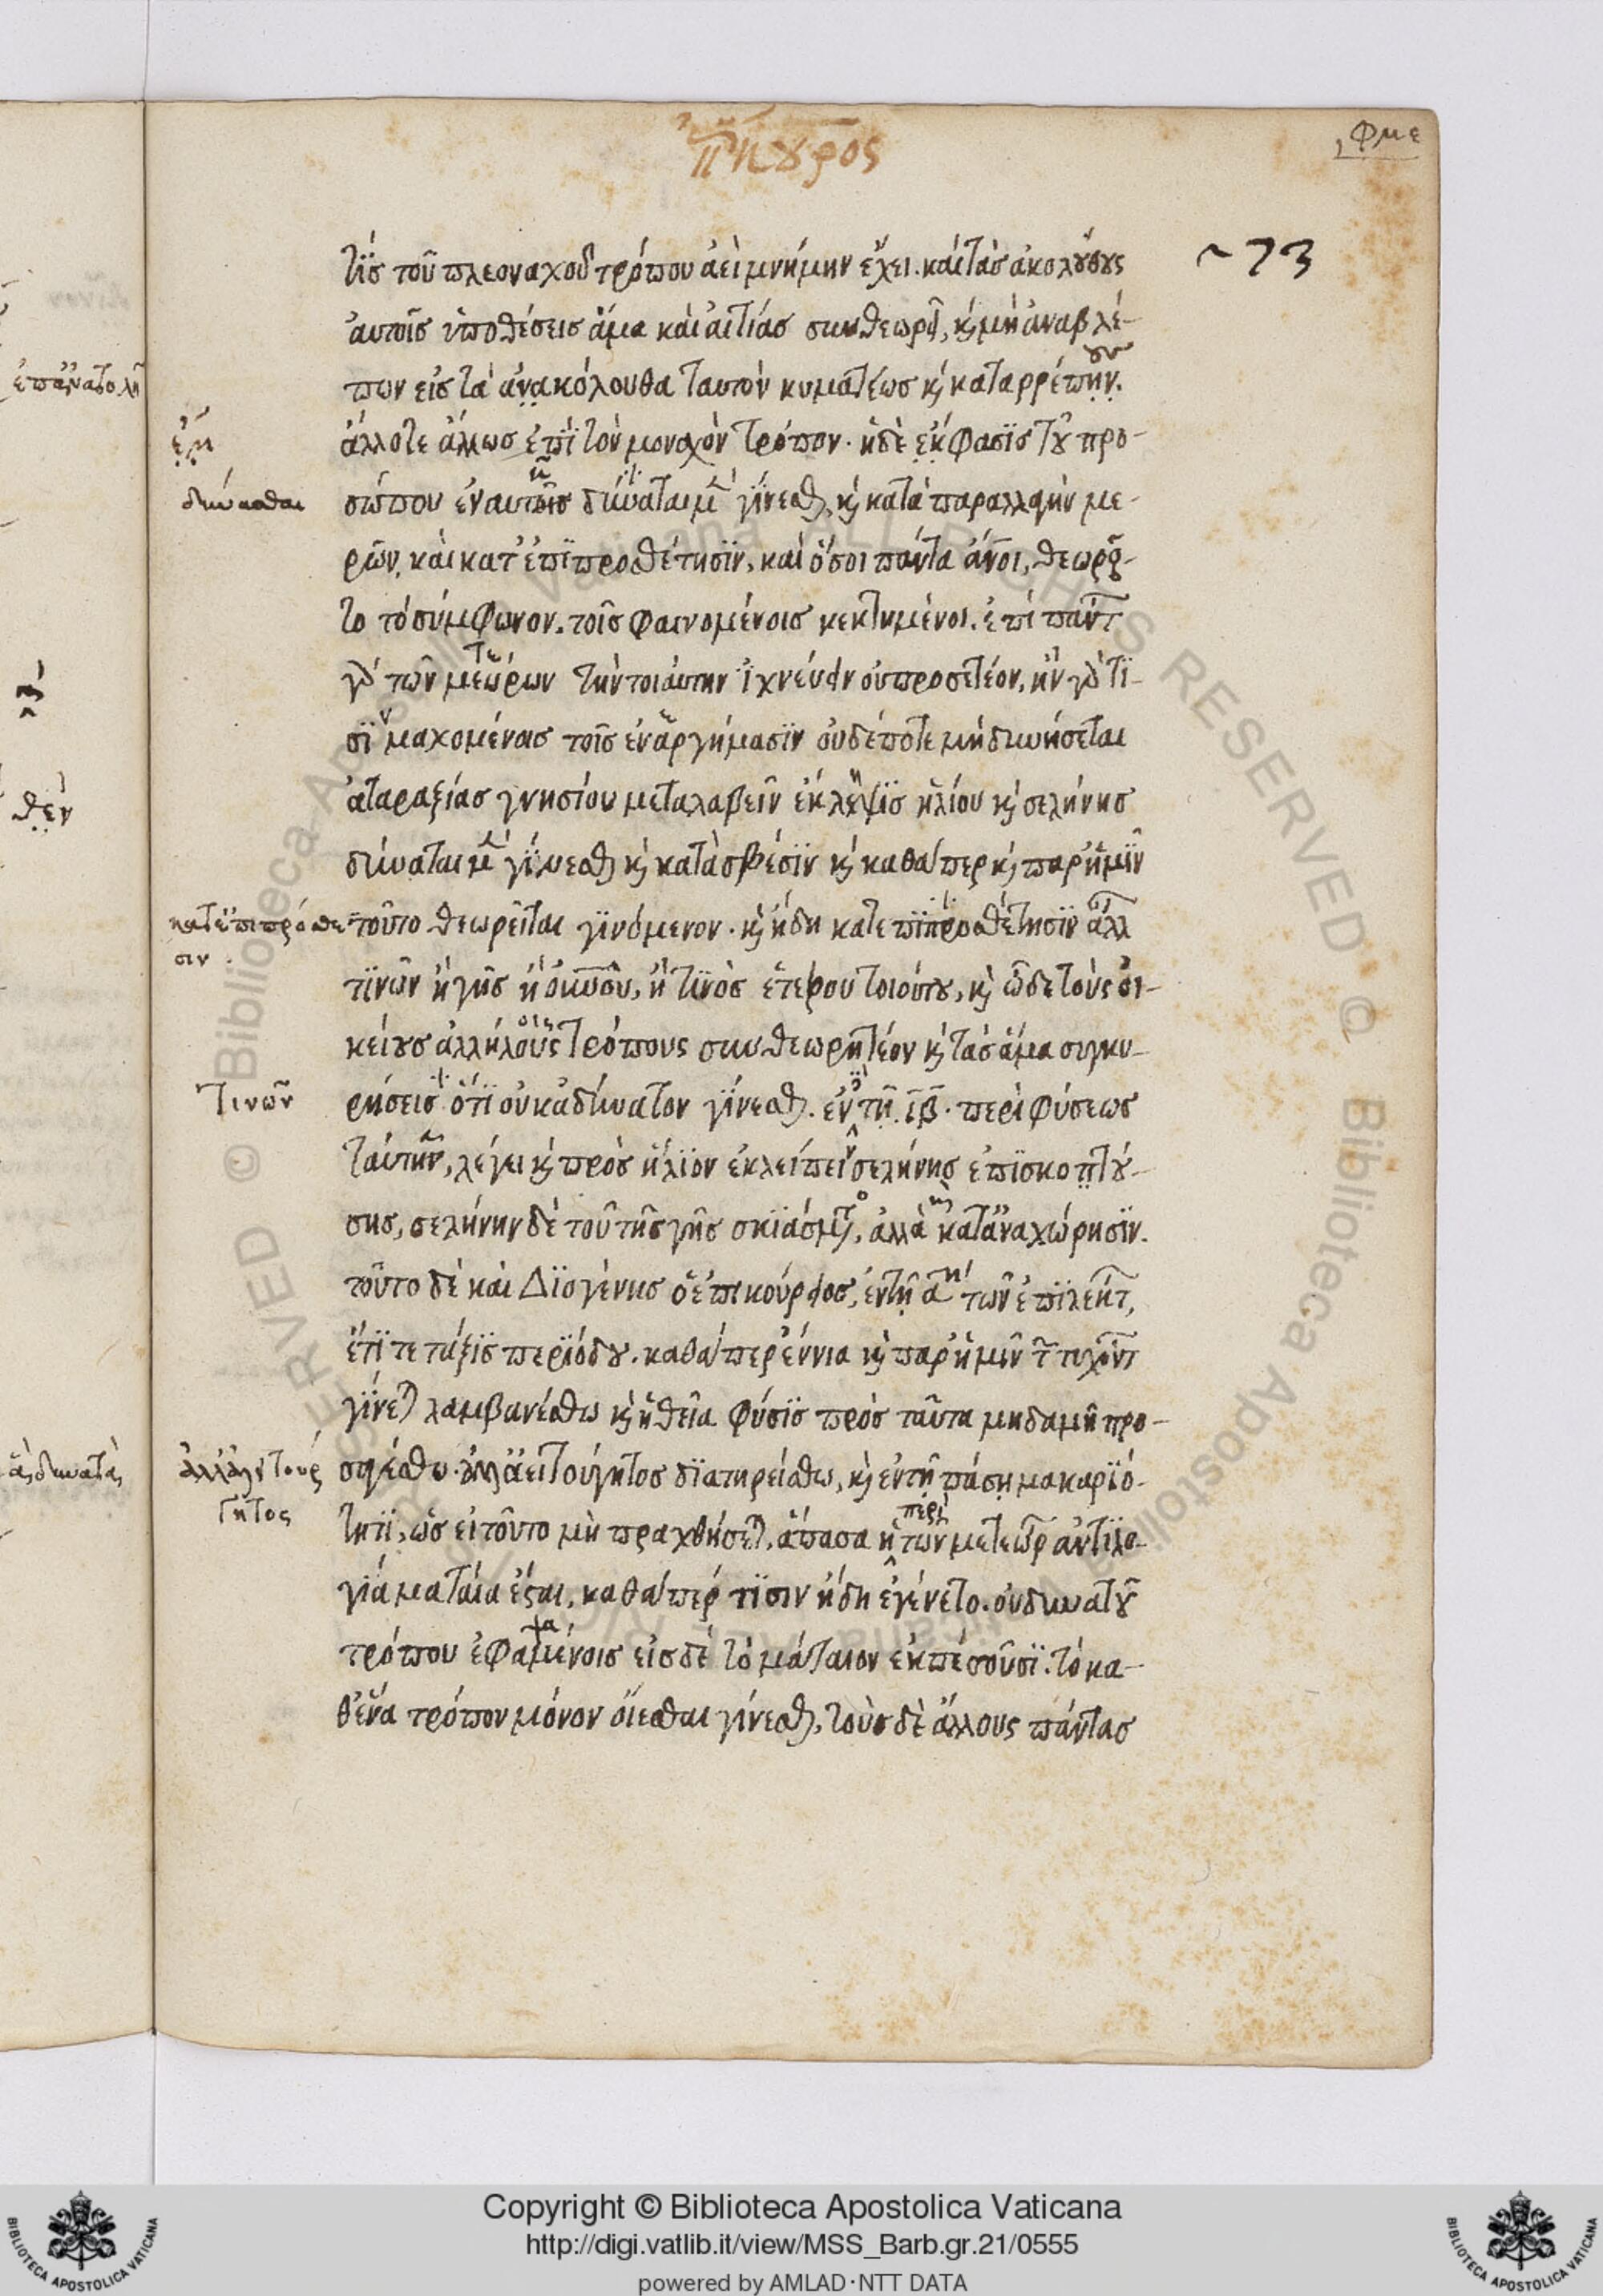 ἐπίκουρος
͵φμε
~73
τίς τοῦ πλεοναχοῦ τρόπου ἀεὶ μνήμην ἔχει. καὶ τὰς ἀκολούθους
αὐτοῖς ὑποθέσεις ἅμα καὶ αἰτίας συνθεωρεῖ, κ μὴ ἀναβλέ-
πων εἰς τὰ ἀνακόλουθα ταυτὸν κυματέως κ καταρρέπην.
ἄλλοτε ἄλλως ἐπῒ τὸν μοναχὸν τρόπον. ἡ δὲ ἐκ φασϊς τοῦ προ-
δύνασθαι
σώπου ἐν αυτοῖς δύναται μ γίνεσθ, κ κατὰ παραλλαγὴν με-
ρῶν, καὶ κατ' ἐπϊπροσθέτησϊν, καὶ ὅσοι πάντα ἄνοι, θεωρ-
το τὸ σύμφωνον. τοῖς φαινομένοις κεκτημένοι. ἐπὶ πάντ
γὰρ τῶν μετεώρων τὴν τοιαύτην ἴχνευσιν οὐ προετέον, ἢν γὰρ τϊ-
σῒ μαχομένοις τοῖς ἐναργήμασϊν οὐδέποτε μὴ δυνήσεται
ἀταραξίας γνησίου μεταλαβεῖν ἐκλειψϊς ἡλίου κ σελήνης
δύναται μ γίνεσθ κ κατὰ σβέσϊν κ καθάπερ κ παρ' ἡμῖν
κατ' ἐπιπρόσθε
σιν
τοῦτο θεωρεῖται γϊνόμενον. κ ἤδη κατ επϊπροσθέτησϊν ἄλλ
τϊνῶν ἢ γῆς ἢ οὐνοῦ, ἤ τϊνὸς ἑτέρου τοιούτου, κ ὧδε τοὺς οἰ-
κείους ἀλλήλους τρόπους συνθεωρητέον κ τὰς ἅμα συγκυ-
τινῶν
ρήσεις ὅτϊ οὐκ ἀδύνατον γίνεσθ. ἐν τῇ ιβ. περὶ φύσεως
ταύτην, λέγει κ πρὸς ἥλϊον ἐκλείπειν σελήνης ἐπϊσκοπτού-
σης, σελήνην δὲ τοῦ τῆς γῆς σκϊάσμτος, ἀλλὰ κ κατ' ἀναχώρησϊν.
τοῦτο δὲ καὶ Δϊογένης ὁ ἐπικούρειος, ἐν τῇ α τῶν ἐπϊλέκτ,
ἔτϊ τε τάξϊς περϊόδου. καθάπερ ἔννια κ παρ' ἡμῖν τ τυχόντ
γίνετ λαμβανέσθω κ ἡ θεῖα φύσϊς πρὸς ταῦτα μηδαμῆ προ-
σαγέσθω. ἀλλ' ἀεὶ τουγητος δϊατηρείσθω, κ ἐν τῇ πάσῃ μακαρϊό-
ἀλλὰ λειτουρ
γητος
τητϊ, ὡς εἰ τοῦτο μὴ πραχθήσετ, ἅπασα ἡ περὶ τῶν μετεώρ ἀντϊλο-
γία ματαία ἔσται, καθάπερ τϊσιν ἤδη ἐγένετο. οὐ δυνατοῦ
τρόπου ἐφαψαμένοις εἰς δὲ τὸ μάταιον ἐκπεσοῦσϊ. τὸ κα-
θ' ἕνα τρόπον μόνον οἴεσθαι γίνεσθ, τοὺς δὲ ἄλλους πάντας
Copyright © Biblioteca Apostolica Vaticana
http://digi.vatlib.it/view/MSS_Barb.gr.21/0555
powered by AMLAD·NTT DATA